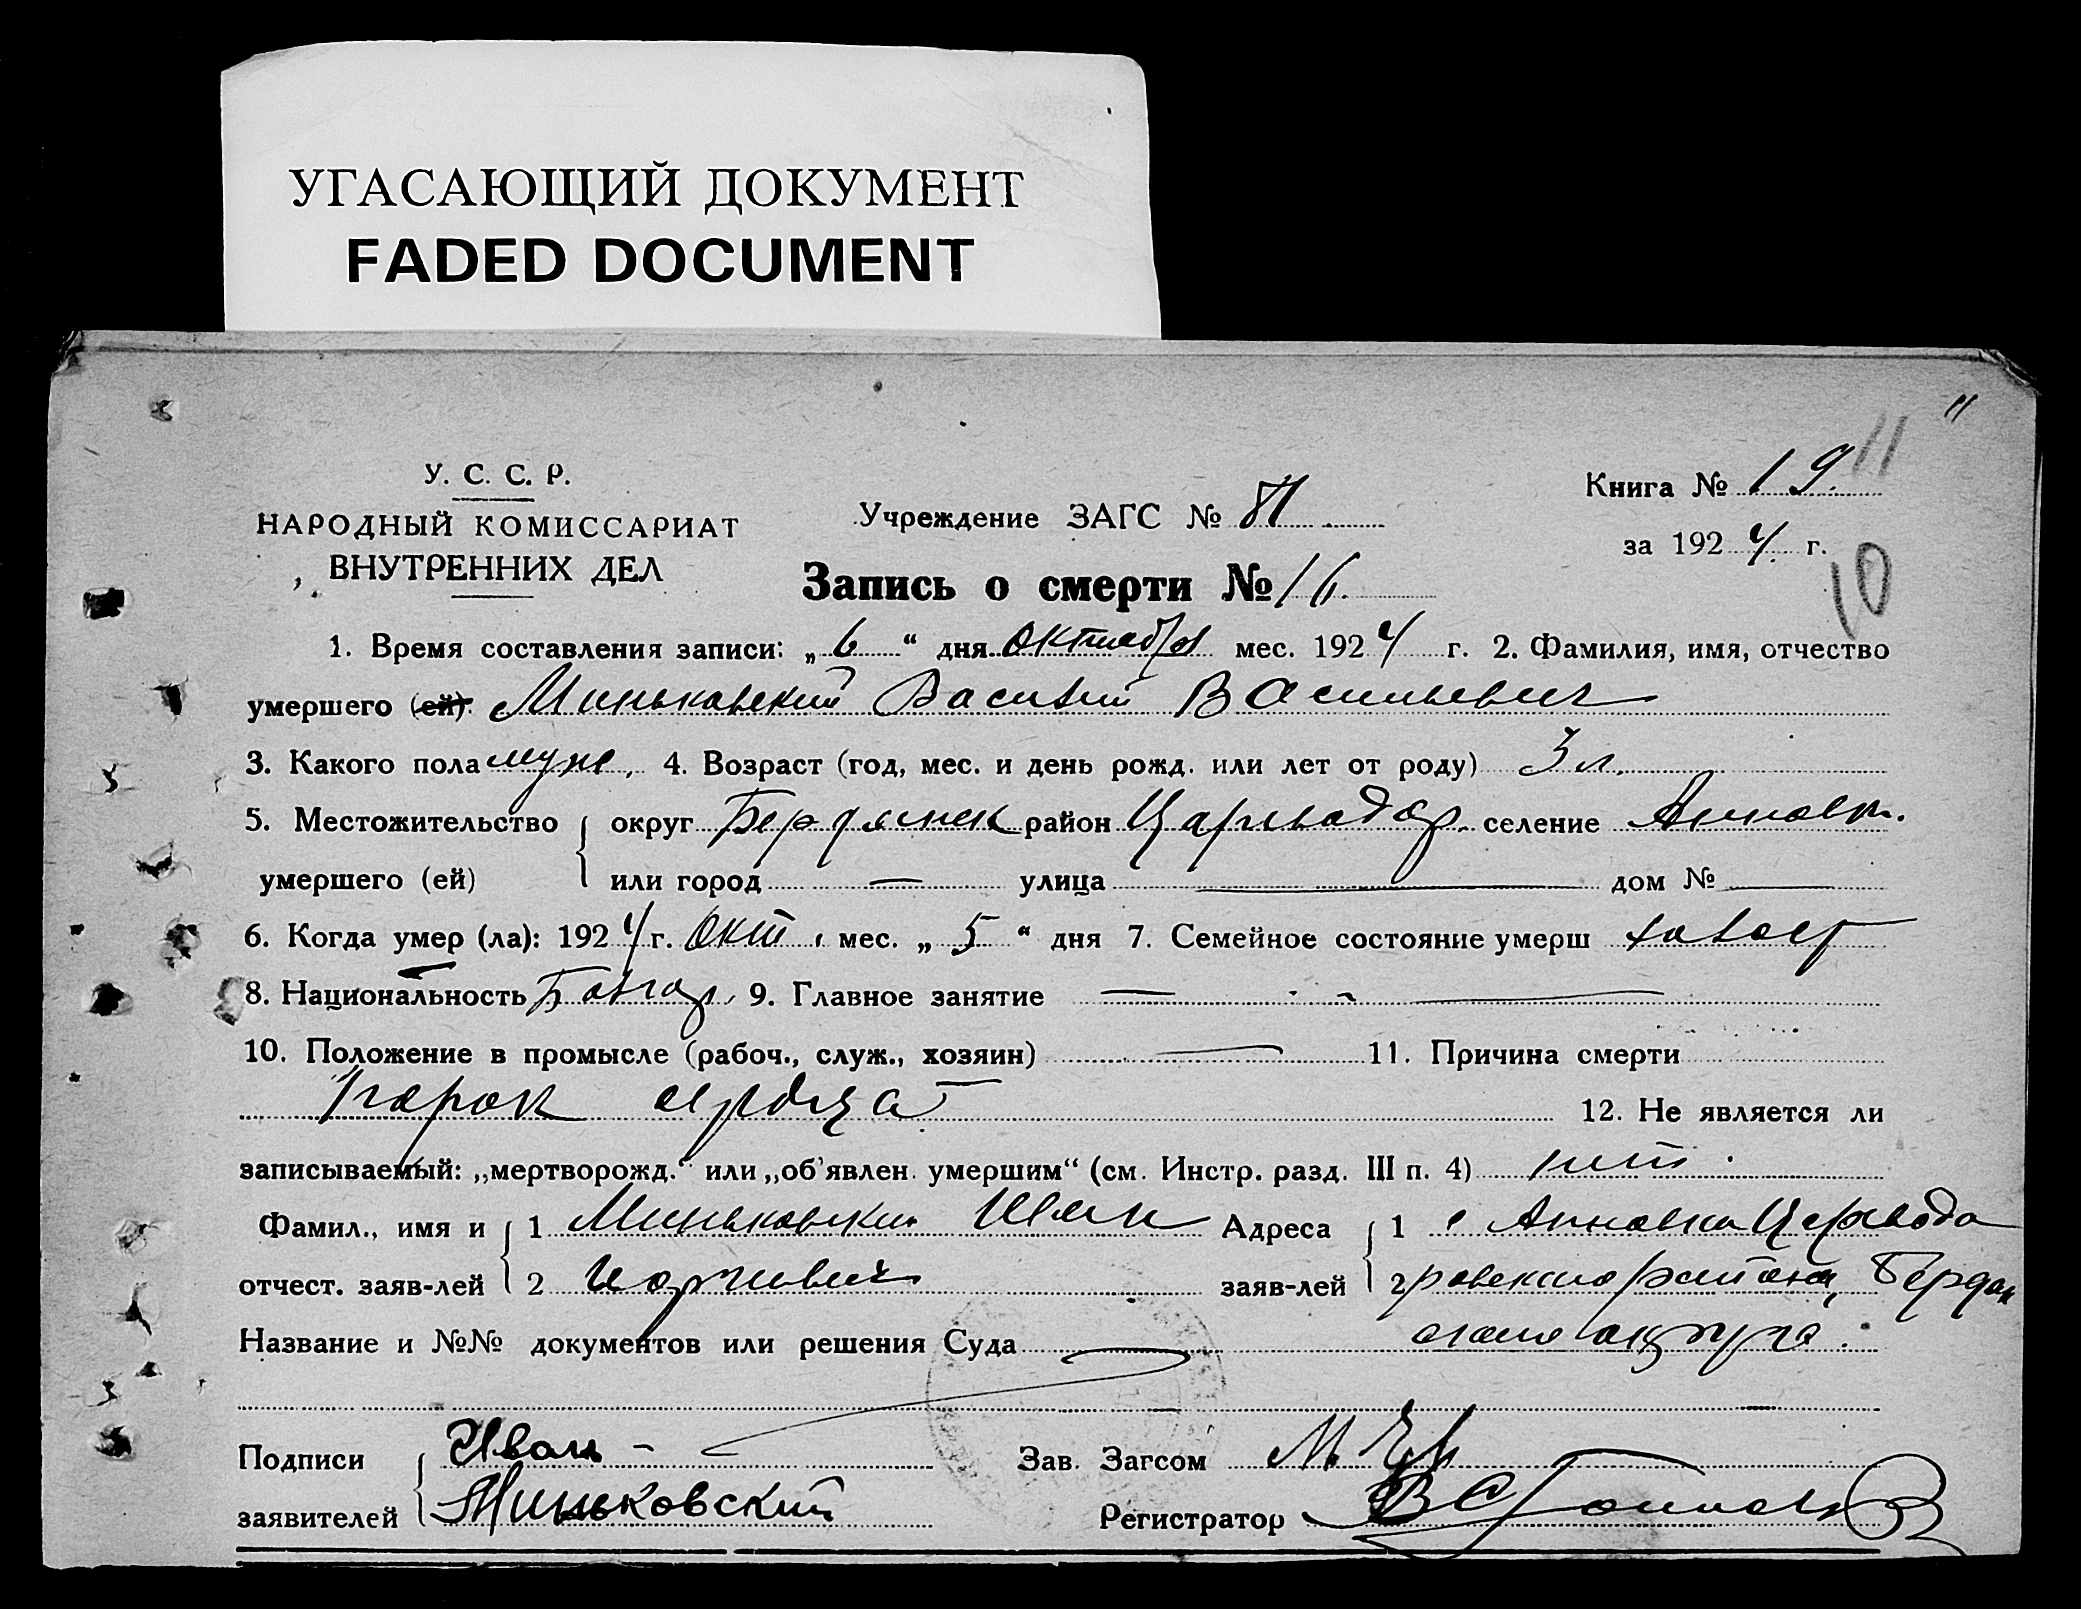 УГАСАЮЩИЙ ДОКУМЕНТ
FADED DOCUMENT
11
У. С. С. Р.
НАРОДНЫЙ КОМИССАРИАТ
ВНУТРЕННИХ ДЕЛ
Учреждение ЗАГС №
Книга № 19. 11
за 1924 г.
10
Запись о смерти № 16.
1. Время составления записи: „ 6 “ дня октября мес. 1924 г. 2. Фамилия, имя, отчество
умершего (ей). Миньковский Василий Васильевич
3. Какого пола муж. 4. Возраст (год, мес. и день рожд. или лет от роду) 3 л.
5. Местожительство округ Бердянск район Цареводар. селение Анновк.
умершего (ей) или город — улица — дом № —
6. Когда умер (ла): 1924 г. Окт. мес. „ 5 “ дня 7. Семейное состояние умерш холост
8. Национальность Болгар. 9. Главное занятие —
10. Положение в промысле (рабоч., служ., хозяин) — 11. Причина смерти
Порок сердца 12. Не является ли
записываемый: „мертворожд.“ или „об'явлен. умершим“ (см. Инстр. разд. III п. 4) нет.
Фамил., имя и 1 Миньковский Иван Адреса 1 с Анновка Царевода
отчест. заяв-лей 2 заяв-лей 2 ровского района, Бердян
Название и №№ документов или решения Суда — ского округа.
Подписи Иван — Зав. Загсом
заявителей Миньковский Регистратор